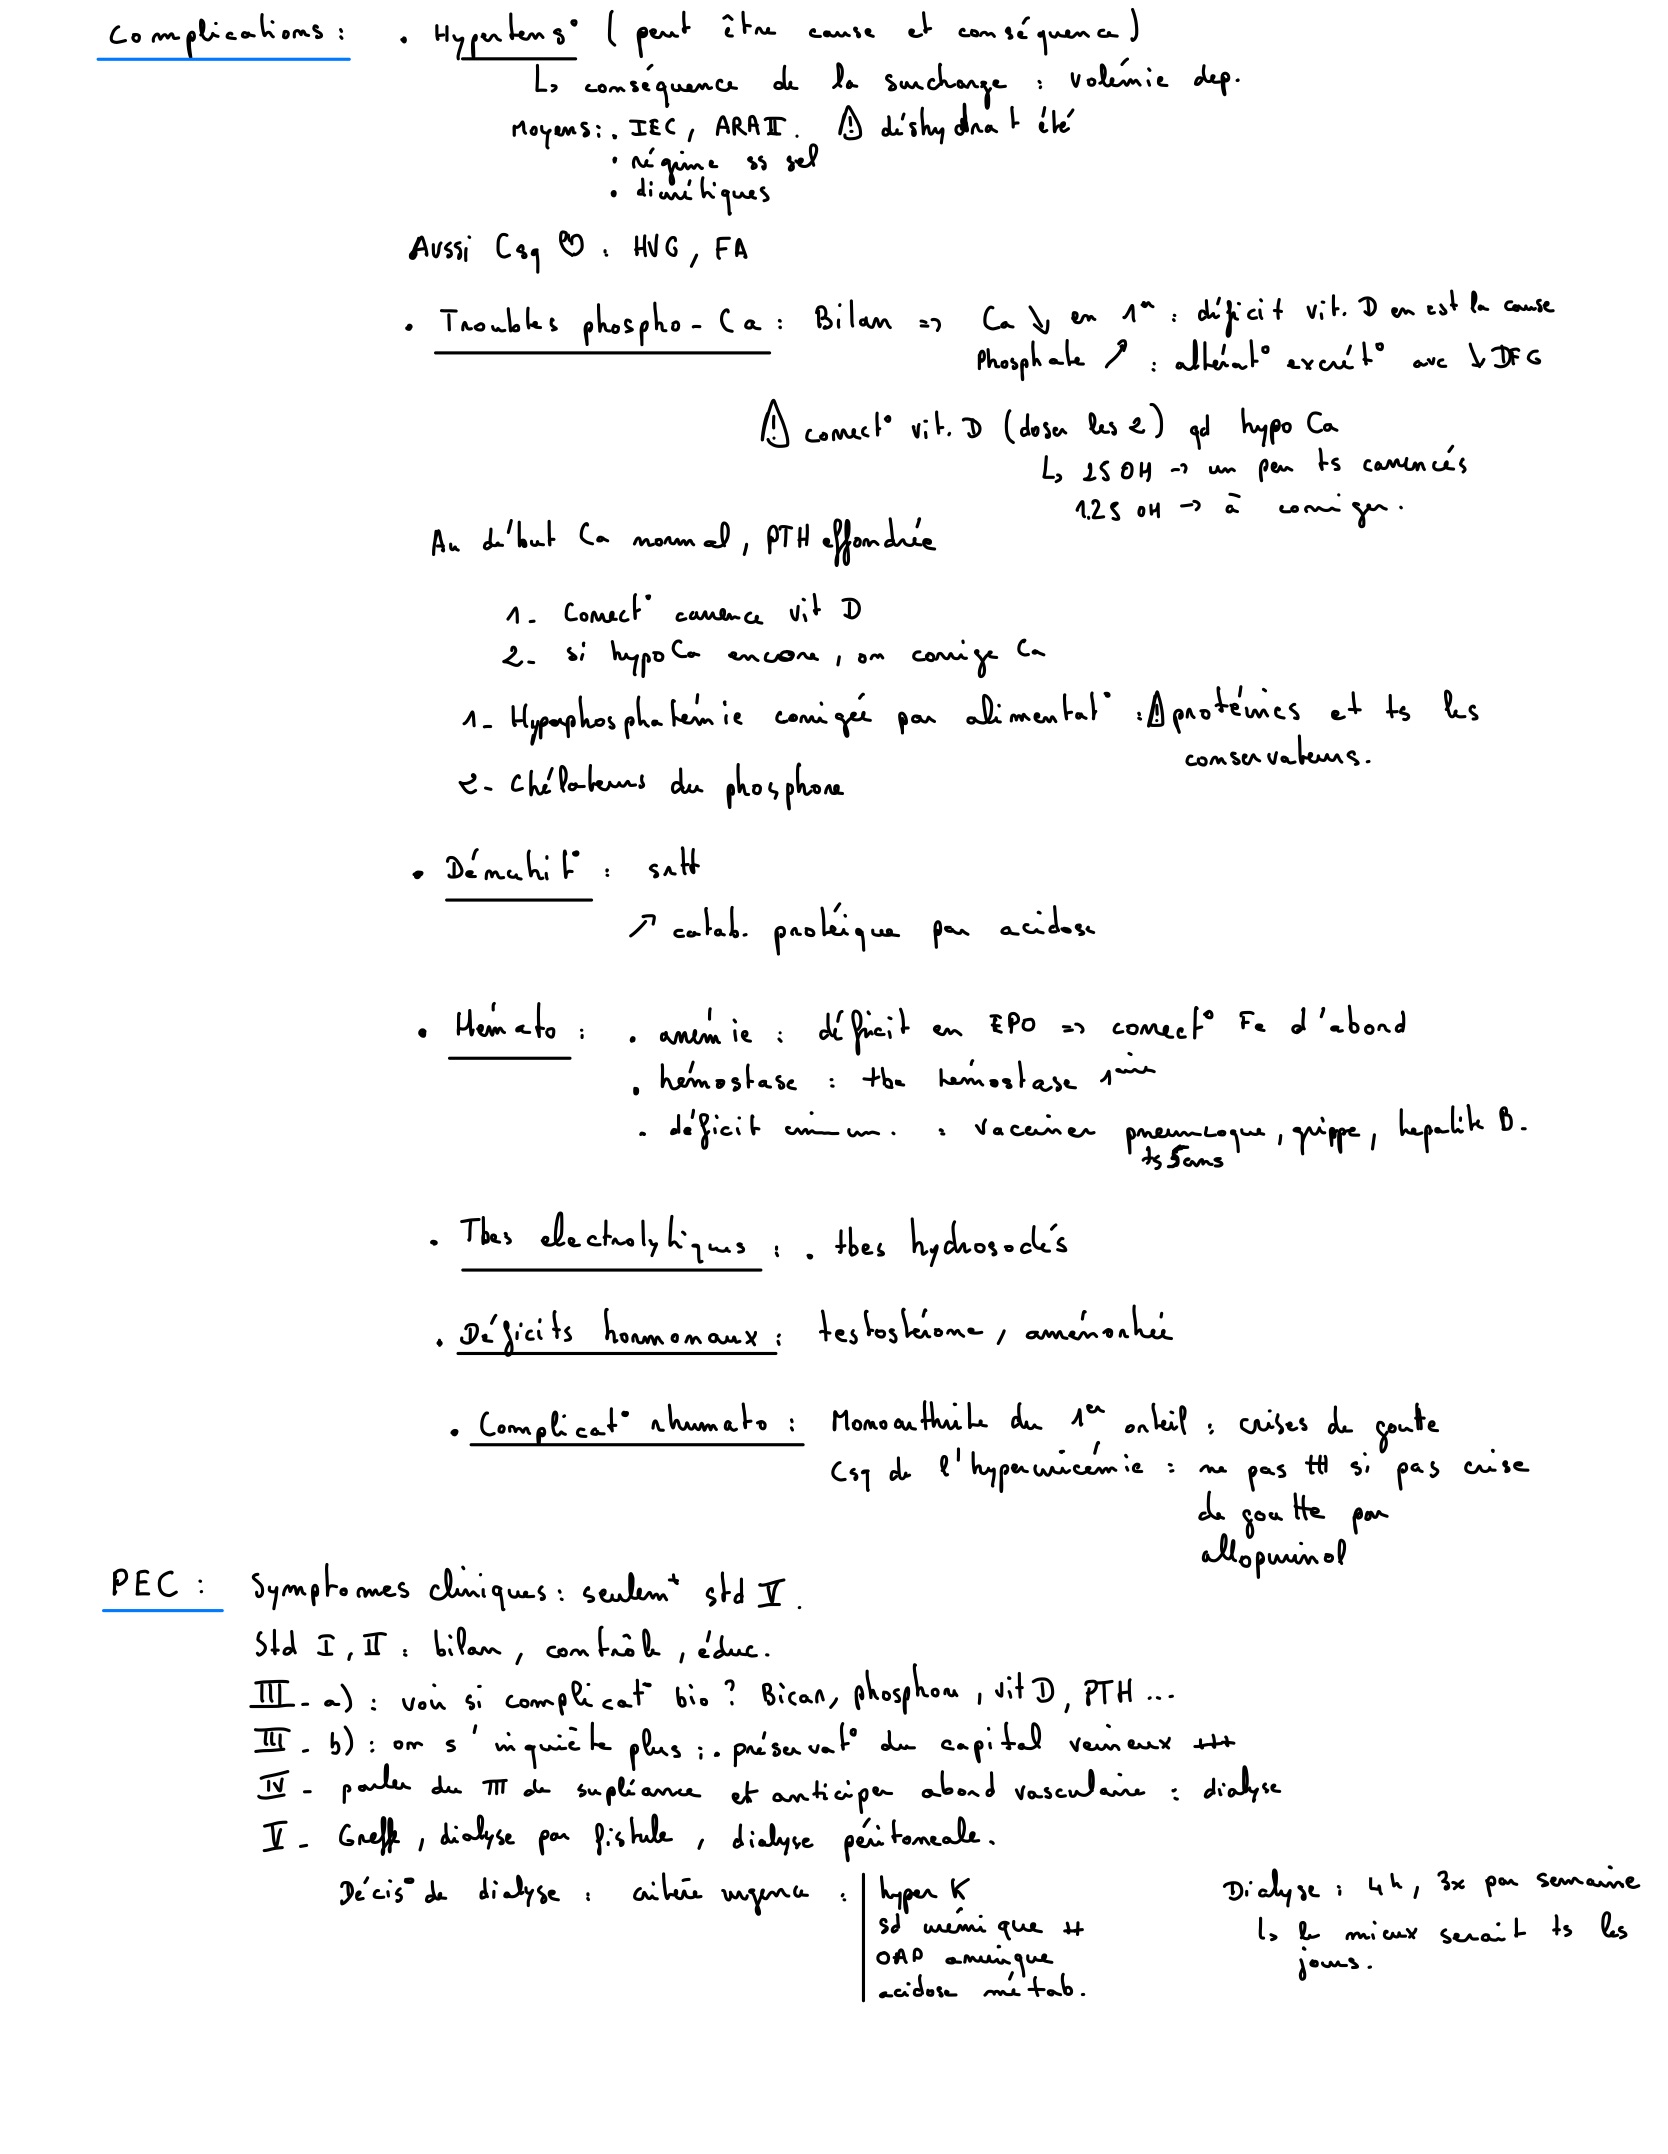 Complications : . Hypertens° ( peut être cause et conséquence)
↳ conséquence de la surcharge : volémie dep.
Moyens : . IEC, ARAII. ⚠ déshydrat été
. régime ss sel
. diurétiques
Aussi Csq ♡ : HVG, FA
. Troubles phospho-Ca : Bilan => Ca ↘ en 1er : déficit vit. D en est la cause
Phosphate ↗ : altérat° excrét° avc ↓ DFG
⚠ correct° vit. D (doser les 2) qd hypo Ca
↳ 25 OH -> un peu ts carencés
1.25 OH -> à corriger.
Au début Ca normal, PTH effondrée
1- Correct° carence vit D
2- si hypoCa encore, on corrige Ca
1- Hyperphosphatémie corrigée par alimentat° : ⚠ protéines et ts les
conservateurs.
2- Chélateurs du phosphore
. Dénutrit° : srtt
↗ catab. protéique par acidose
. Hémato : . anémie : déficit en EPO => correct° Fe d'abord
. hémostase : tbe hémostase 1aire
. déficit immun. : vacciner pneumcoque, grippe, hepatite B.
ts 5ans
. Tbes electrolytiques : . tbes hydrosodés
. Déficits hormonaux : testostérone, aménorhée
. Complicat° rhumato : Monoarthrite du 1er orteil : crises de goutte
Csq de l'hyperuricémie : ne pas ttt si pas crise
de goutte par
allopurinol
PEC : Symptomes cliniques : seulemt std V.
Std I, II : bilan, contrôle, éduc.
III - a) : voir si complicat° bio ? Bicar, phosphore, vit D, PTH ...
III - b) : on s'inquiète plus : . préservat° du capital veineux +++
IV - parler du TTT de supléance et anticiper abord vasculaire : dialyse
V - Greffe, dialyse par fistule, dialyse péritoneale.
Décis° de dialyse : critère urgence : hyper K
sd urémique ++
OAP anurique
acidose métab.
Dialyse : 4h, 3x par semaine
↳ le mieux serait ts les
jours.